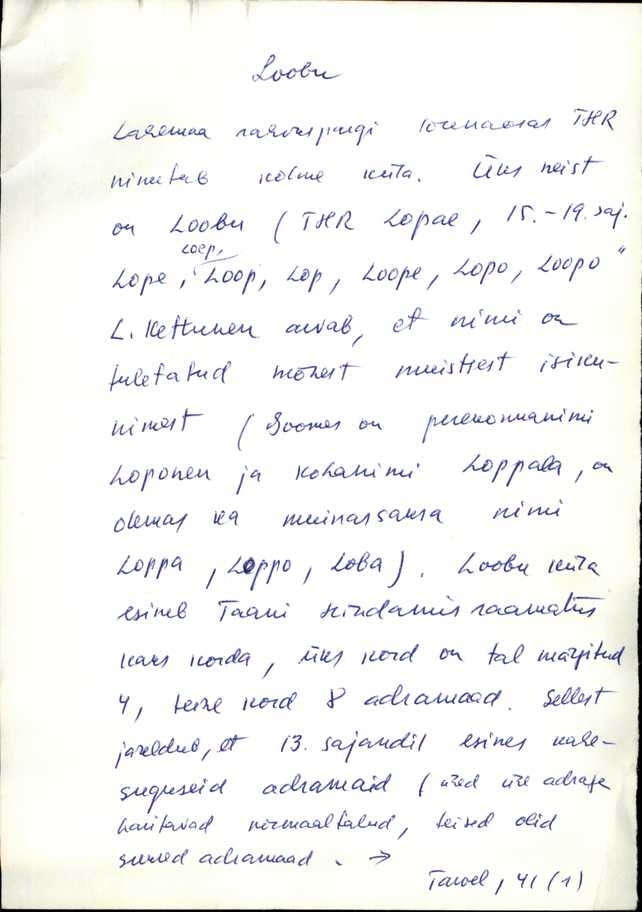 Loobu
Lahemaa rahvuspargi lõunaosas THR
nimetab kolme küla. Üks neist
on Loobu (THR Lopae, 15.-19. saj.
Loep,
Lope, Loop, Lop, Loope, Lopo, Loopo"
L. Kettunen arvab, et nimi on
tuletatud mõnest muistsest isiku-
nimest (Soomes on perekonnanimi
Loponen ja kohanimi Loppala, on
olemas ka muinassaksa nimi
Loppa, Loppo, Loba). Loobu küla
esineb Taani hindamisraamatus
kaks korda, üks kord on tal märgitud
4, teine kord 8 adramaad. Sellest
järeldub, et 13. sajandil esines kahe-
suguseid adramaid (ühed ühe adraga
haritavad normaaltalud, teised olid
suured adramaad. →
Tarvel, 41 (1)